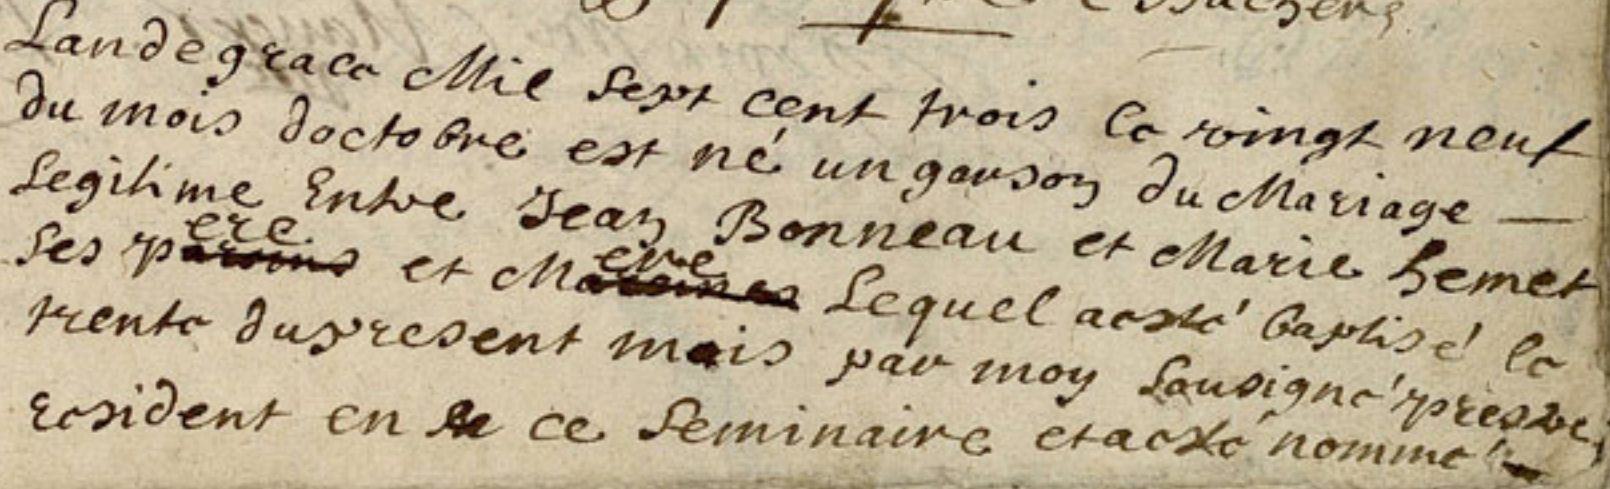 Landegrace Mil sept cent trois le vingt neuf
du mois doctobre est né un garson du Mariage —
Legitime Entre Jean Bonneau et Marie hemet
ses pere et Mere Lequel aesté baptisé le
trente dupresent mois par moy Sousigné prestre
resident en ce seminaire etaesté nommé